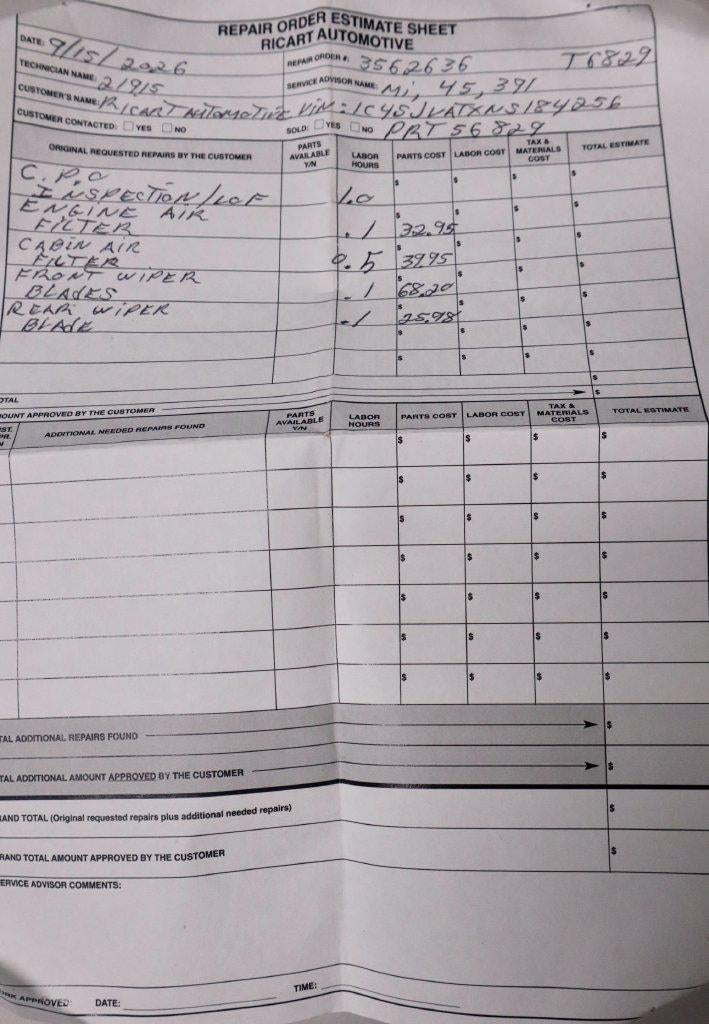 REPAIR ORDER ESTIMATE SHEET
RICART AUTOMOTIVE
DATE: 9/15/2026 REPAIR ORDER #: 3562636 T6829
TECHNICIAN NAME: 21915 SERVICE ADVISOR NAME: Mi, 45,391
CUSTOMER'S NAME: RICART AUTOMOTIVE VIN: 1C4SJVATXNS184256
CUSTOMER CONTACTED: YES NO SOLD: YES NO PRT 56829
ORIGINAL REQUESTED REPAIRS BY THE CUSTOMER PARTS AVAILABLE Y/N LABOR HOURS PARTS COST LABOR COST TAX & MATERIALS COST TOTAL ESTIMATE
C.P.O $ $ $ $
INSPECTION/LOF 1.0
ENGINE AIR $ $ $ $
FILTER .1 32.95
CABIN AIR $ $ $ $
FILTER 0.5 39.95
FRONT WIPER $ $ $ $
BLADES .1 68.20
REAR WIPER $ $ $ $
BLADE .1 25.98
$ $ $ $
$ $ $ $
$
OTAL $
OUNT APPROVED BY THE CUSTOMER
ADDITIONAL NEEDED REPAIRS FOUND PARTS AVAILABLE Y/N LABOR HOURS PARTS COST LABOR COST TAX & MATERIALS COST TOTAL ESTIMATE
$ $ $ $
$ $ $ $
$ $ $ $
$ $ $ $
$ $ $ $
$ $ $ $
$ $ $ $
TAL ADDITIONAL REPAIRS FOUND $
TAL ADDITIONAL AMOUNT APPROVED BY THE CUSTOMER $
AND TOTAL (Original requested repairs plus additional needed repairs) $
RAND TOTAL AMOUNT APPROVED BY THE CUSTOMER $
ERVICE ADVISOR COMMENTS:
ORK APPROVED: DATE: TIME: